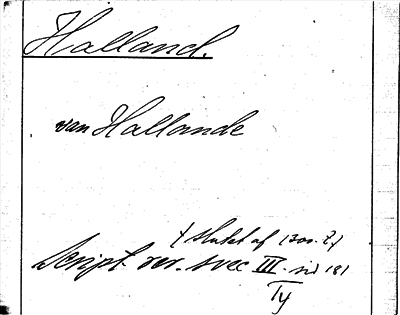 Halland.
van Hallande
(slutet af 1300-t.)
Script. rer. svec III. sid 181
Ty